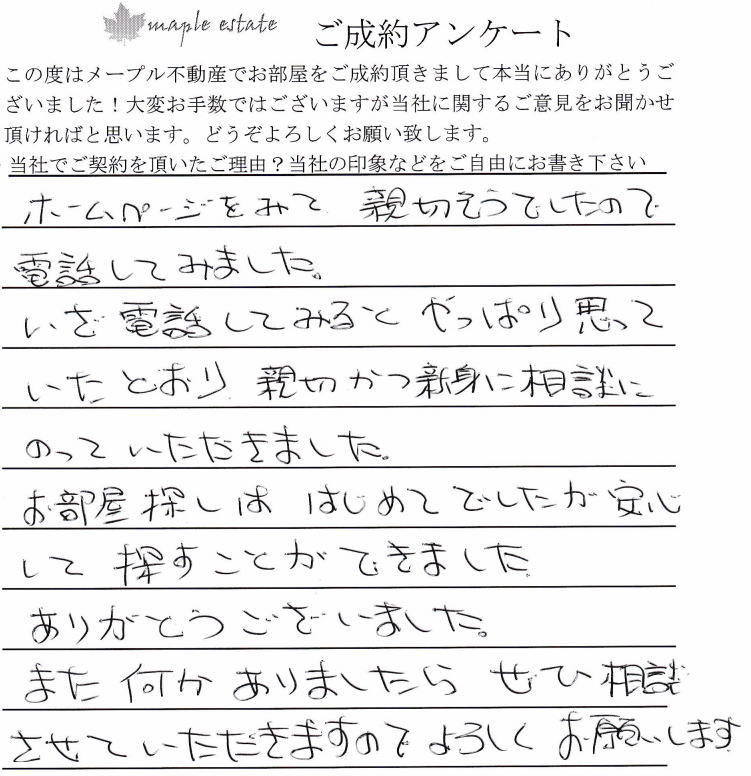 maple estate ご成約アンケート
この度はメープル不動産でお部屋をご成約頂きまして本当にありがとうご
ざいました！大変お手数ではございますが当社に関するご意見をお聞かせ
頂ければと思います。どうぞよろしくお願い致します。
当社でご契約を頂いたご理由？当社の印象などをご自由にお書き下さい
ホームページをみて 親切そうでしたので
電話してみました。
いざ電話してみると やっぱり思って
いたとおり 親切かつ新身に相談に
のっていただきました。
お部屋探しは はじめてでしたが 安心
して 探すことができました
ありがとうございました。
また何かありましたら ぜひ相談
させていただきますのでよろしくお願いします